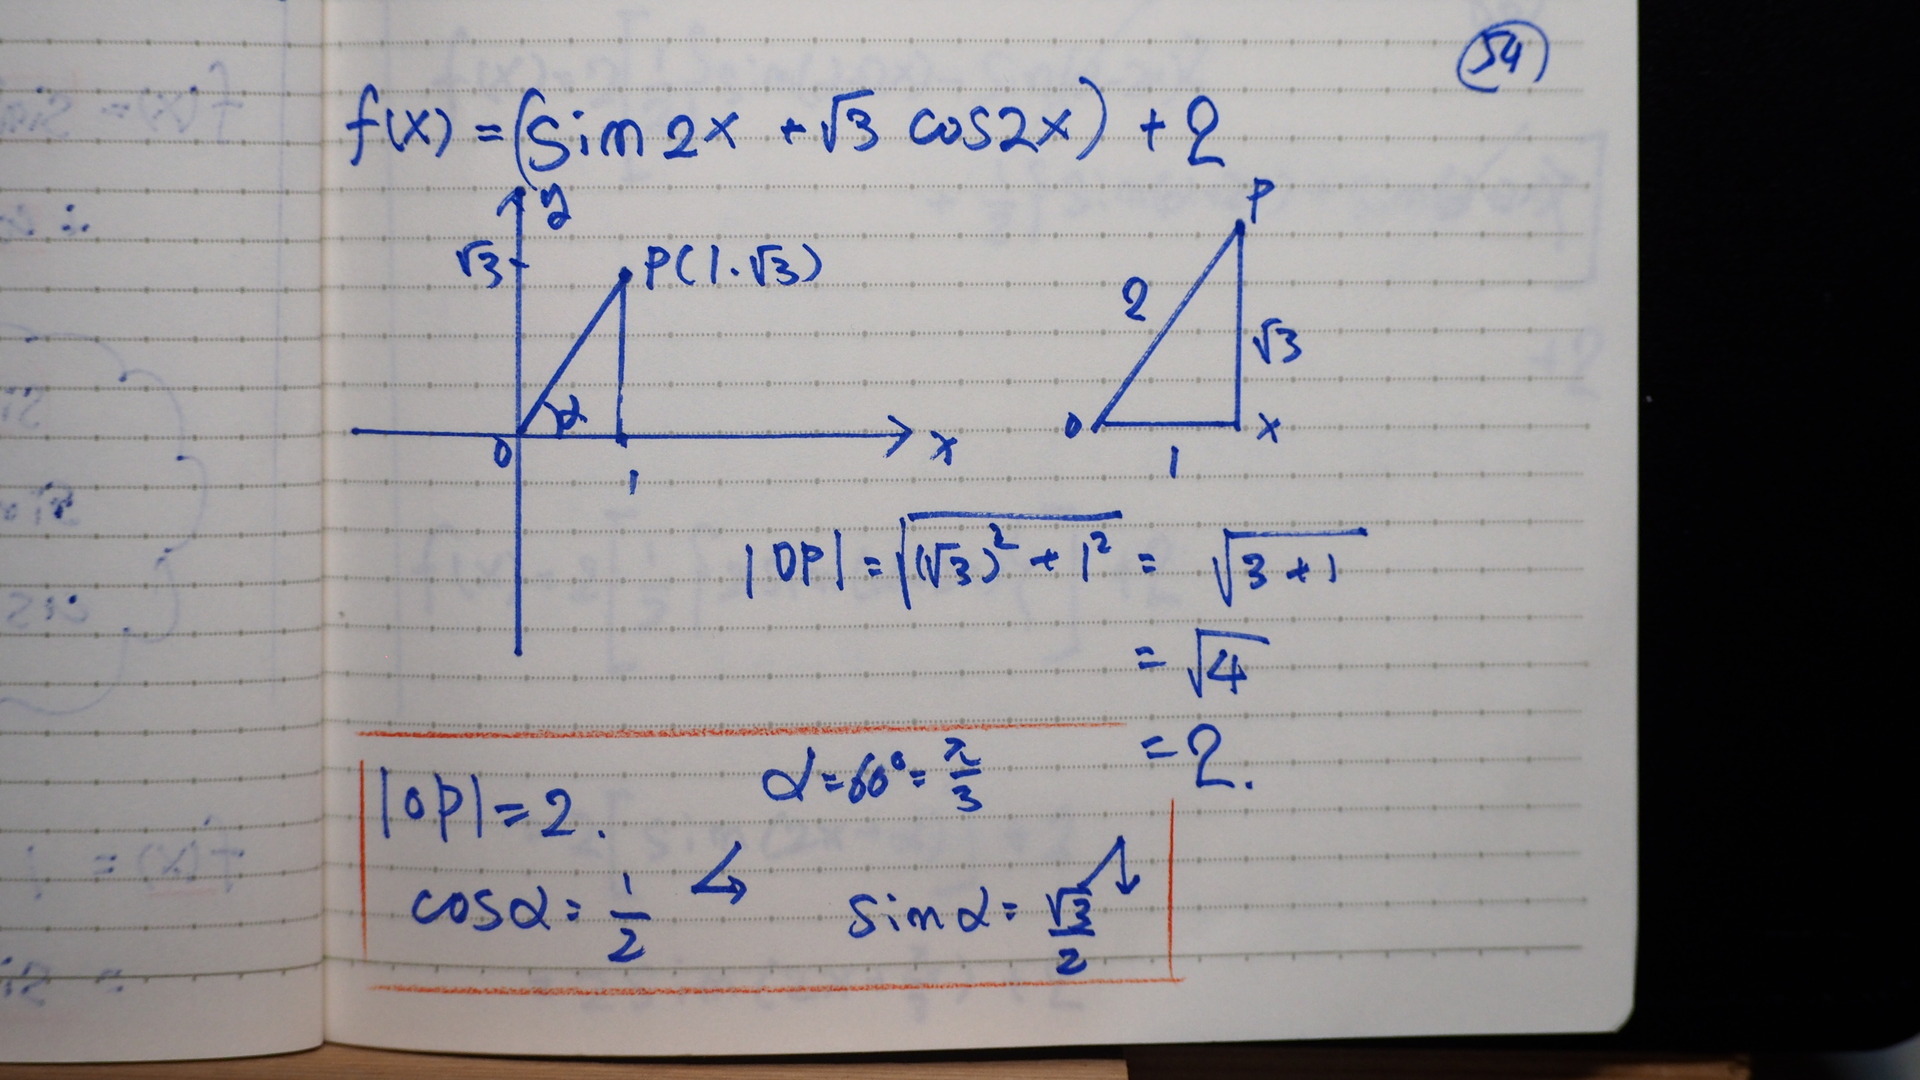 54
f(x) = (sin 2x + √3 cos 2x) + 2
y
√3
P(1.√3)
α
0
1
x
P
2
√3
0
1
x
|OP| = √(√3)² + 1² = √3 + 1
= √4
= 2.
α = 60° = π/3
|OP| = 2.
cos α = 1/2
sin α = √3/2